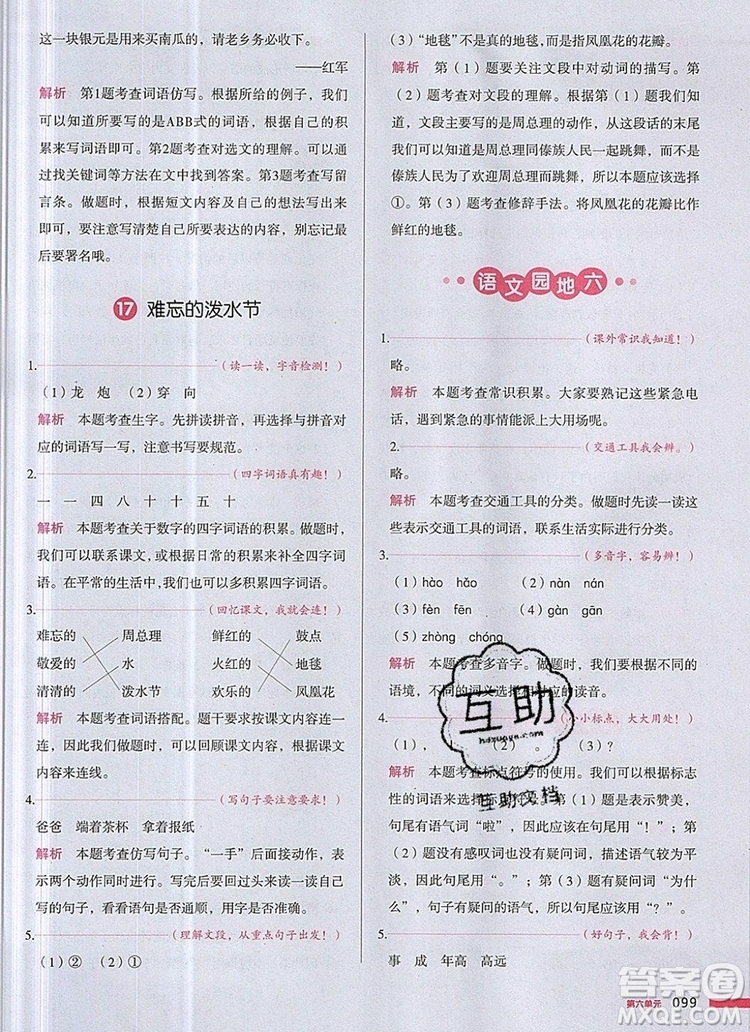 这一块银元是用来买南瓜的，请老乡务必收下。
——红军
解析 第1题考查词语仿写。根据所给的例子，我们
可以知道所要写的是ABB式的词语，根据自己的积
累来写词语即可。第2题考查对选文的理解。可以通
过找关键词等方法在文中找到答案。第3题考查写留
言条。做题时，根据短文内容及自己的想法写出来
即可，要写清楚自己所表达的内容，别忘记最
后要署名哦。
17 难忘的泼水节
1.（读一读，字音检测！）
（1）龙 炮 （2）穿 向
解析 本题考查生字。先拼读拼音，再选择与拼音对
应的词语写一写，注意书写要规范。
2.（四字词语真有趣！）
一 一 四 八 十 十 五 十
解析 本题考查关于数字的四字词语的积累。做题时，
我们可以联系课文，或根据日常的积累来补全四字词
语。在平常的生活中，我们可以多积累四字词语。
3.（回忆课文，我就会连！）
难忘的 周总理 鲜红的 鼓点
敬爱的 水 火红的 地毯
清清的 泼水节 欢乐的 凤凰花
解析 本题考查词语搭配。题干要求按课文内容连一
连，所以我们在做题时可以回顾课文内容，根据课文
内容来连线。
4.（写句子要注意要求！）
爸爸 端着茶杯 拿着报纸
解析 本题考查仿写句子。“一手”后面应接动词，表
示两个动作同时进行。写完后要回过头来读一读自己
写的句子，看看语句是否通顺，用词是否准确。
5.（理解文段，从重点句子出发！）
（1）② （2）①
（3）“地毯”不是真的地毯，而是指凤凰花的花瓣。
解析 第（1）题要关注文段中对动词的描写。第
（2）题考查对文段的理解。根据第（1）题可以知
道，文段主要写的是周总理的动作，从文段的末尾
我们可以知道周总理同傣族人民一起跳舞，同时写
傣族人民欢迎周总理而跳舞，所以本题应该选择
①。第（3）题考查修辞手法。将凤凰花的花瓣比作
鲜红的地毯。
语文园地六
1.（课外常识我知道！）
略。
解析 本题考查常识积累。大家要熟记这些紧急电
话，遇到紧急的事情能派上大用场呢。
2.（交通工具我会辨。）
略。
解析 本题考查交通工具的分类。做题时先读一读这
些表示交通工具的词语，联系生活实际进行分类。
3.（多音字，容易辨！）
（1）hào hǎo （2）nàn nán
（3）fèn fēn （4）gàn gān
（5）zhòng chóng
解析 本题考查多音字。做题时，要根据不同的
语境，不同的词义选择相对应的读音。
4.（小小标点，大大用处！）
（1）， ！ （2） 。 （3）？
解析 本题考查标点符号的使用。要根据标志
性的词语来选择标点符号。第（1）题是表示赞美，
句尾有语气词“啦”，因此应该在句尾用“！”。第
（2）题没有感叹词也没有疑问词，描述语气较为平
淡，因此句尾用“。”。第（3）题有疑问词“为什
么”，有疑问的语气，所以句尾应该用“？”。
5.（好句子，我会背！）
事 成 年高 高远
互助
hdzuoye.com
互助文档
第六单元 099
答案圈
MXQE.COM